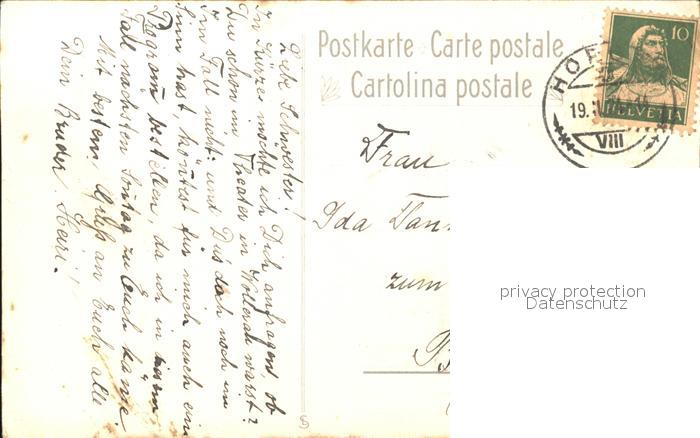 Postkarte · Carte postale
Cartolina postale
10
HELVETIA
HOF
19.
VIII
Liebe Schwester!
In Kürze möchte ich Dich anfragen, ob
Du schon im Theater in Wollerau warst?
Im Fall nicht und Du's doch noch im
Sinn hast, könntest für mich auch ein
Programm bestellen, da ich in
Fall nächsten Sontag zu Euch käme.
Mit bestem Gruß an Euch alle
Dein Bruder Heiri.
Frau
Ida
zum
privacy protection
Datenschutz